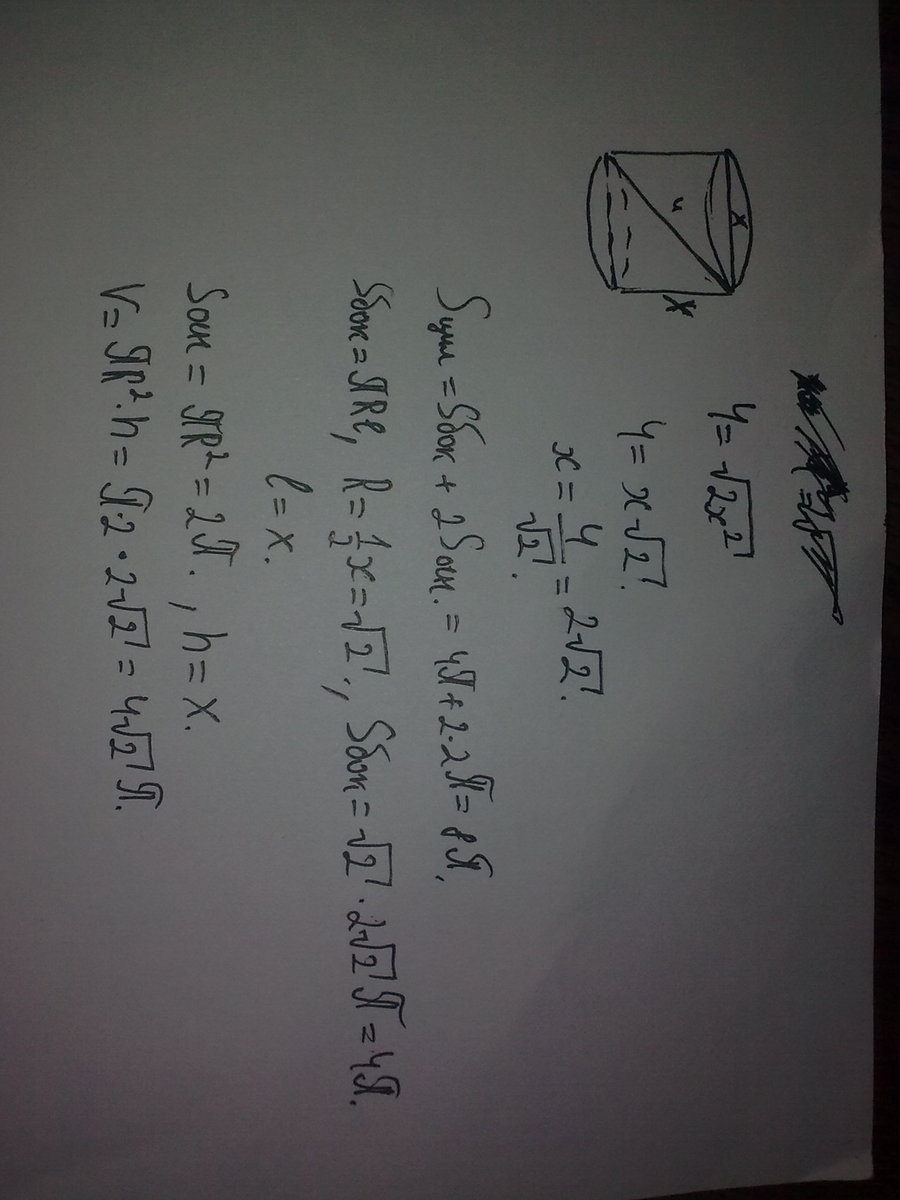 4 = √2x²
4 = x√2.
x = 4/√2 = 2√2.
x
4
x
Sцил = Sбок + 2Sосн. = 4π + 2·2π = 8π.
Sбок = πRl, R = 1/2 x = √2, Sбок = √2 · 2√2 π = 4π.
l = x.
Sосн = πR² = 2π. , h = x.
V = πR²·h = π·2·2√2 = 4√2 π.